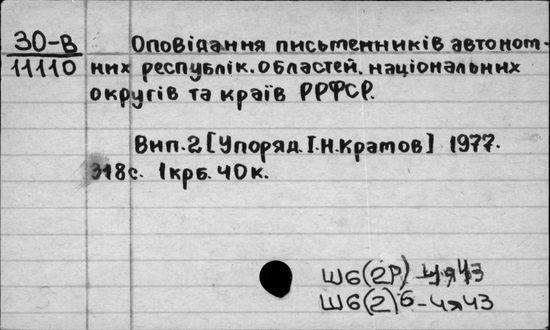 30-В
11110
Оповідання письменників автоном-
них республік. областей. національних
округів та країв РРФСР.
Вип. 2 [Упоряд. І.Н. Крамов] 1977.
318с. 1крб. 40к.
Ш6(2Р)-4я43
Ш6(2)6-4я43